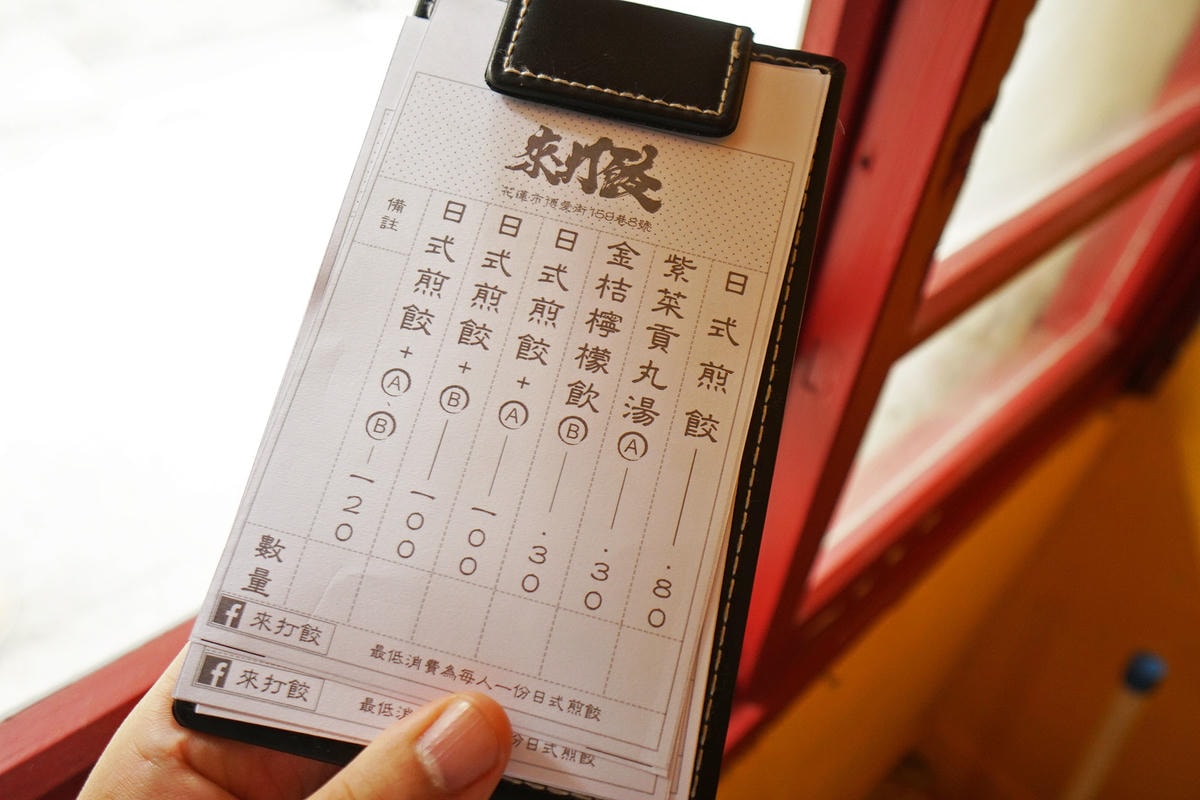 來打餃
花蓮市博愛街159巷8號
日式煎餃——.80
紫菜貢丸湯Ⓐ——.30
金桔檸檬飲Ⓑ——.30
日式煎餃+Ⓐ——一00
日式煎餃+Ⓑ——一00
日式煎餃+Ⓐ、Ⓑ—一20
備註
數量
f 來打餃
最低消費為每人一份日式煎餃
f 來打餃
最低消
份日式煎餃